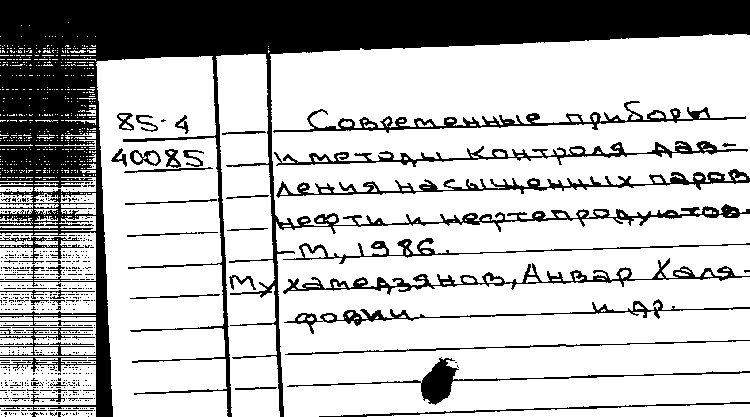 85-4 Современные приборы
40085 и методы контроля дав-
ления насыщенных паров
нефти и нефтепродуктов.
-М., 1986.
Мухамедзянов, Анвар Халя-
фович. и др.